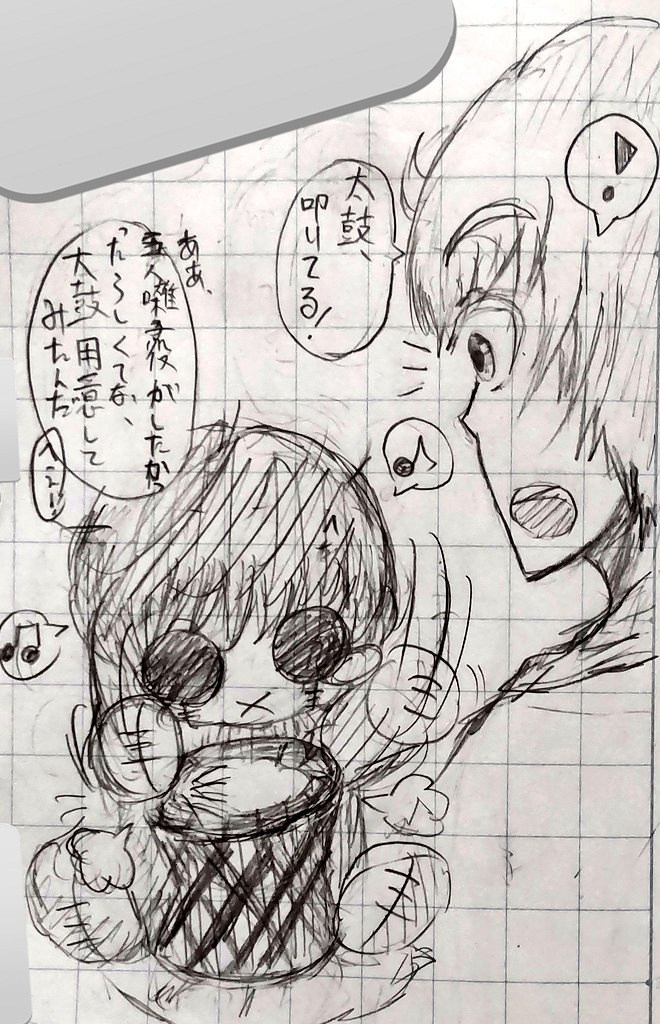 太鼓、
叩いてる!
ああ、
五人囃子役がしたか
ったらしくてな、
太鼓用意して
みたんだ
へえ!!